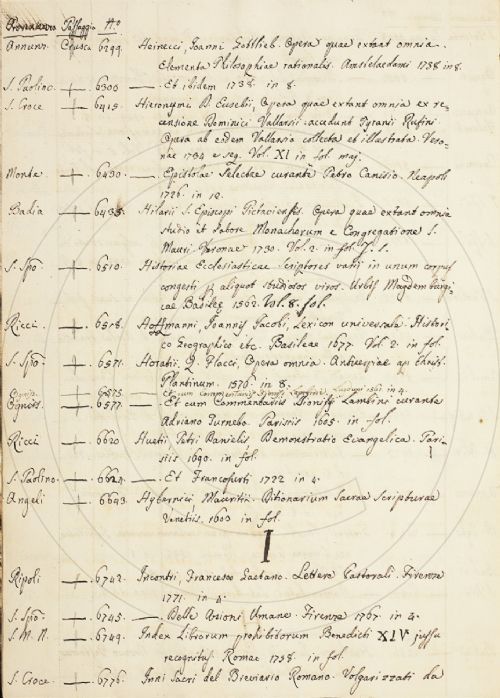 Provenienza Passaggio N.o
Annunz. Crusca 6299. Heinecci, Joanni Gottlieb. Opera quae extant omnia.
Elementa Philosophiae rationalis. Amstelaedami 1738 in 8.
S. Paolino. 6300 Et ibidem 1738. in 8.
S. Croce 6415. Hieronymi D. Eusebii, Opera quae extant omnia ex re-
censione Dominici Vallarsii: accedunt Tyranii Rufini
Opera ab eodem Vallarsio collecta et illustrata. Vero-
nae 1734 e seg. Vol. XI in fol. maj.
Monte 6430. Epistolae Selectae curante Petro Canisio. Neapoli
1726. in 12.
Badia 6435. Hilarii S. Episcopi Pictaviensis. Opera quae extant omnia
studio et labore Monachorum e Congregatione S.
Mauri. Veronae 1730. Vol. 2. in fol.
S. Spo. 6510. Historiae Ecclesiasticae Scriptores varii in unum corpus
congesti p aliquot studiosos viros. Urbis Magdemburgi-
cae Basileę 1562. Vol. 8. fol.
Ricci. 6518. Hoffmanni, Joannis Jacobi, Lexicon universale. Histori-
co Geographico etc. Basileae 1677. Vol. 2. in fol.
S. Spo. 6571. Horatii, Q. Flacci, Opera omnia. Antuerpiae ap. Christ.
Plantinum. 1576. in 8.
6575. Et cum commentariis Dionysii Lambini. Lugduni 1561 in 4.
6577. Et cum Commentariis Dionisii Lambini curante
Adriano Turnebo. Parisiis 1605. in fol.
Ricci 6620 Huetii Petri Danielis, Demonstratio Evangelica. Pari-
siis 1690. in fol.
S. Paolino. 6624. Et Francofurti 1722 in 4.
Angeli 6643. Hybernici Mauritii. Ditionarium Sacrae Scripturae
Venetiis. 1603 in fol.
I
Ripoli 6742. Incontri, Francesco Gaetano. Lettere Pastorali. Firenze
1771. in 4.
S. Spo. 6745. Delle Azioni Umane. Firenze 1767. in 4.
S. M. N. 6749. Index Librorum prohibitorum Benedicti XIV jussu
recognitus. Romae 1758. in fol.
S. Croce 6776. Inni Sacri del Breviario Romano. Volgarizzati da